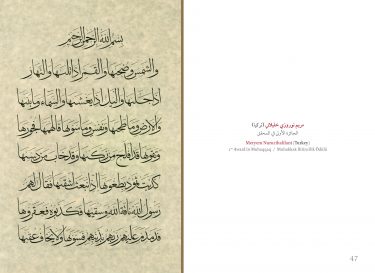 بسم الله الرحمن الرحيم
والشمس وضحيها والقمر اذا تليها والنهار
اذا جليها والليل اذا يغشيها والسماء وما بنيها
والارض وما طحيها ونفس وما سويها فالهمها فجورها
وتقويها قد افلح من زكيها وقد خاب من دسيها
كذبت ثمود بطغويها اذ انبعث اشقيها فقال لهم
رسول الله ناقة الله وسقيها فكذبوه فعقروها
فدمدم عليهم ربهم بذنبهم فسويها ولا يخاف عقبيها
مريم نوروزي خليلاني (تركيا)
الجائزة الأولى في المحقق
Meryem Nuruzihalilani (Turkey)
1st Award in Muhaqqaq / Muhakkak Birincilik Ödülü
47